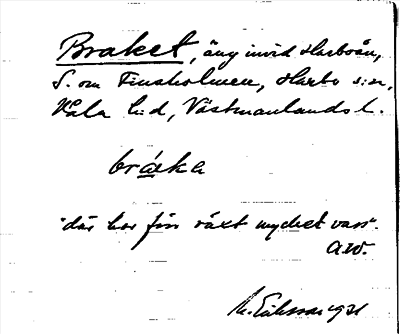 Braket, äng invid Harboån,
S. om Finsholmen, Harbo s:n,
Våla h:d, Västmanlands l.
bråka
"där har förr växt mycket vass".
A.W.
M. Eriksson 1921